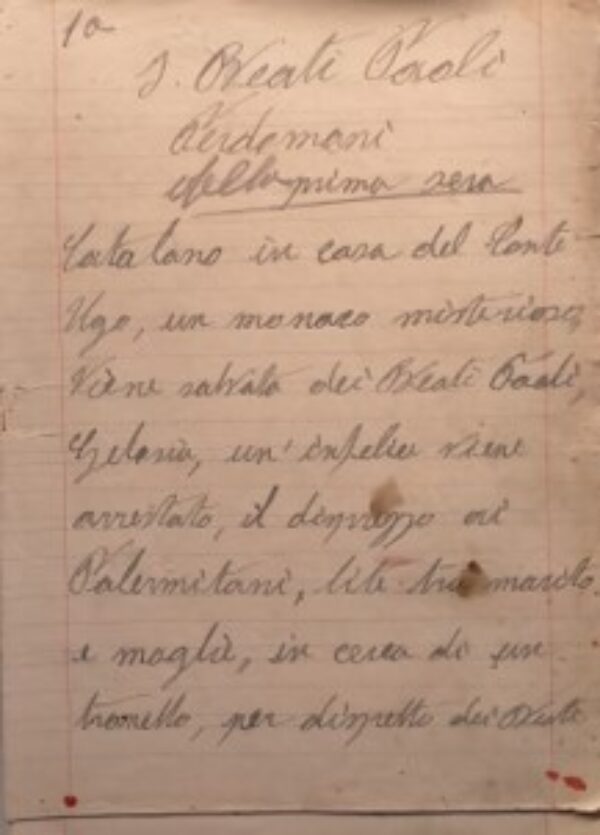 1a
I. Beati Paoli
Perdomani
della prima sera
Catalano in casa del Conte
Ugo, un monaco misterioso,
Viene salvato dei Beati Paoli,
Gelosia, un' infelice viene
arrestato, il disprezzo ai
Palermitani, lite tra marito
e moglie, in cerca di un
tranello, per dispetto dei Beati